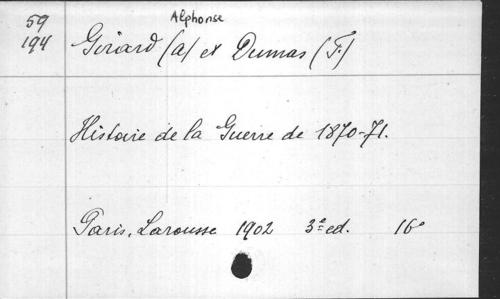 Alphonse
59
194
Girard (A) et Dumas (F.)
Histoire de la Guerre de 1870-71.
Paris, Larousse 1902 3e ed. 16°